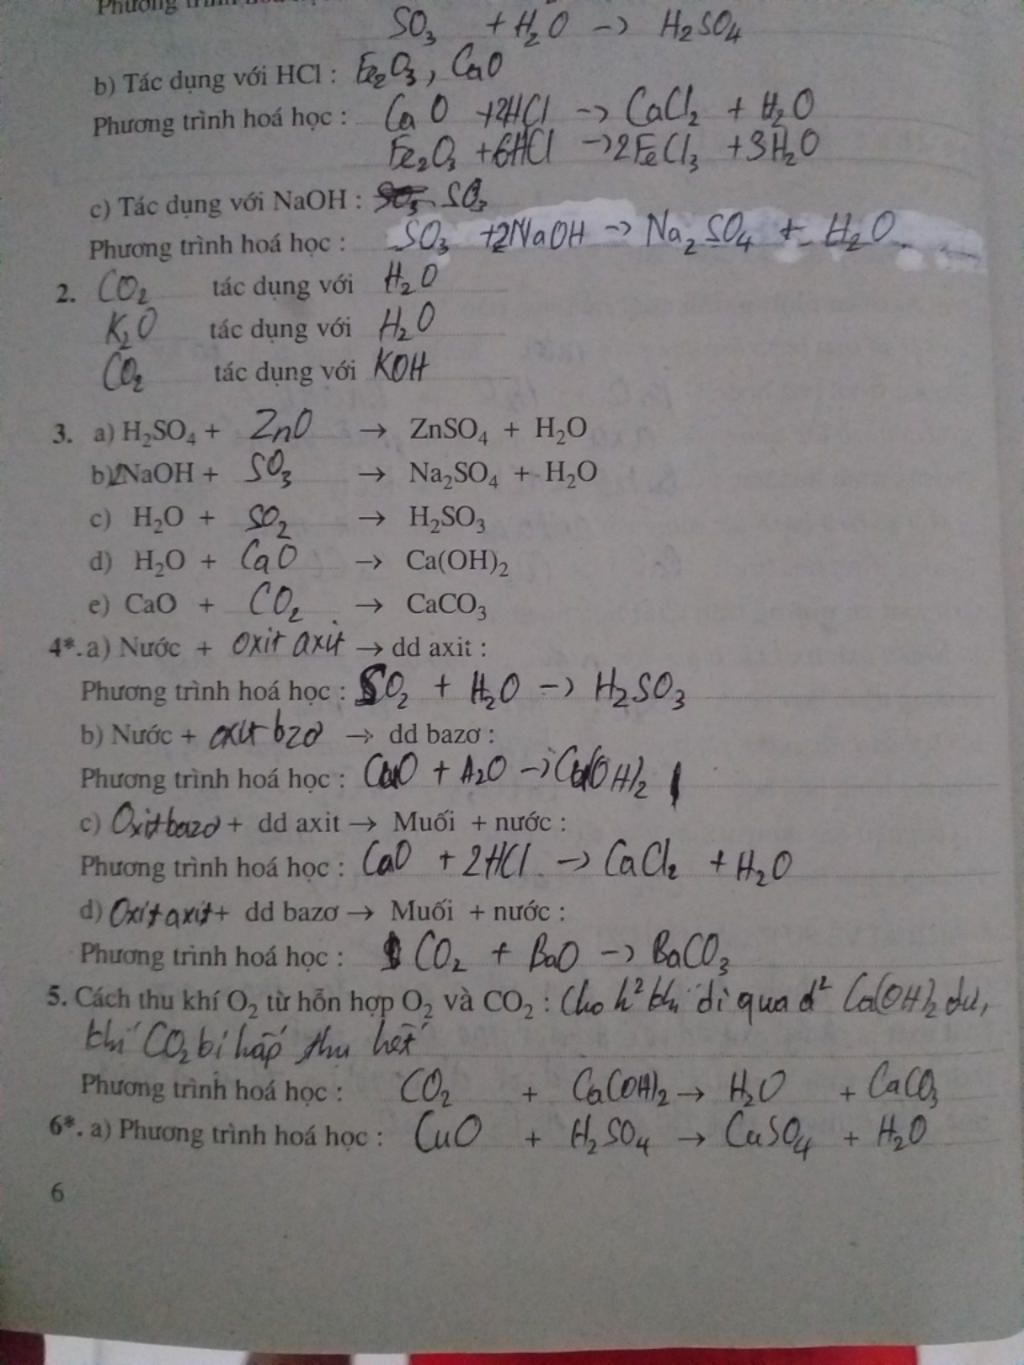 Phương trình hoá
SO₃ + H₂O → H₂SO₄
b) Tác dụng với HCl : Fe₂O₃, CaO
Phương trình hoá học : CaO + 2HCl → CaCl₂ + H₂O
Fe₂O₃ + 6HCl → 2FeCl₃ + 3H₂O
c) Tác dụng với NaOH : SO₃
Phương trình hoá học : SO₃ + 2NaOH → Na₂SO₄ + H₂O
2. CO₂ tác dụng với H₂O
K₂O tác dụng với H₂O
CO₂ tác dụng với KOH
3. a) H₂SO₄ + ZnO → ZnSO₄ + H₂O
b) 2NaOH + SO₃ → Na₂SO₄ + H₂O
c) H₂O + SO₂ → H₂SO₃
d) H₂O + CaO → Ca(OH)₂
e) CaO + CO₂ → CaCO₃
4*. a) Nước + oxit axit → dd axit :
Phương trình hoá học : SO₂ + H₂O → H₂SO₃
b) Nước + oxit bzơ → dd bazơ :
Phương trình hoá học : CaO + H₂O → Ca(OH)₂
c) Oxit bazơ + dd axit → Muối + nước :
Phương trình hoá học : CaO + 2HCl → CaCl₂ + H₂O
d) Oxit axit + dd bazơ → Muối + nước :
Phương trình hoá học : CO₂ + BaO → BaCO₃
5. Cách thu khí O₂ từ hỗn hợp O₂ và CO₂ : Cho h² khí đi qua d² Ca(OH)₂ dư,
khí CO₂ bị hấp thu hết
Phương trình hoá học : CO₂ + Ca(OH)₂ → H₂O + CaCO₃
6*. a) Phương trình hoá học : CuO + H₂SO₄ → CuSO₄ + H₂O
6